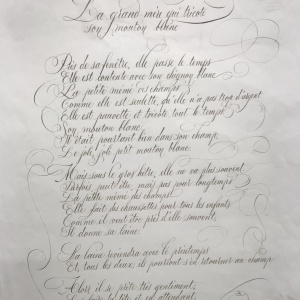 La grand mère qui tricote
son mouton bêlene
Près de sa fenêtre, elle passe le temps
Elle est contente avec son chignon blanc
La petite mémé des champs
Comme elle est seulette, qu'elle n'a pas trop d'argent
Elle est pauvrette et tricote tout le temps
Son mouton blanc,
Il était pourtant bien dans son champ
Le joli, joli petit mouton blanc.
Mais sous le gros hêtre, elle ne va plus souvent
Dehors peut être, mais pas pour longtemps
La petite mémé des champs
Elle fait des chaussettes pour tous les enfants
Comme il veut être près d'elle souvent,
Il donne sa laine.
La laine reviendra avec le printemps
Et, tous les deux, ils pourront s'en retourner au champ
Alors il se prête très gentiment,
tête et en attendant